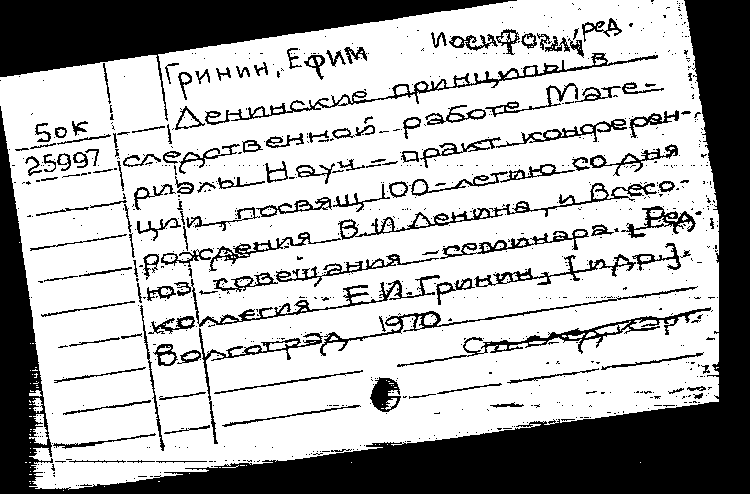 Гринин, Ефим Иосифович, ред.
Ленинские принципы в
50к
25997
следственной работе. Мате-
риалы Науч-практ. конферен-
ции, посвящ. 100-летию со дня
рождения В.И.Ленина, и Всесо-
юз. совещания-семинара. [Ред.
коллегия: Е.И.Гринин, [и др.].
Волгоград. 1970.
См. след. карт.